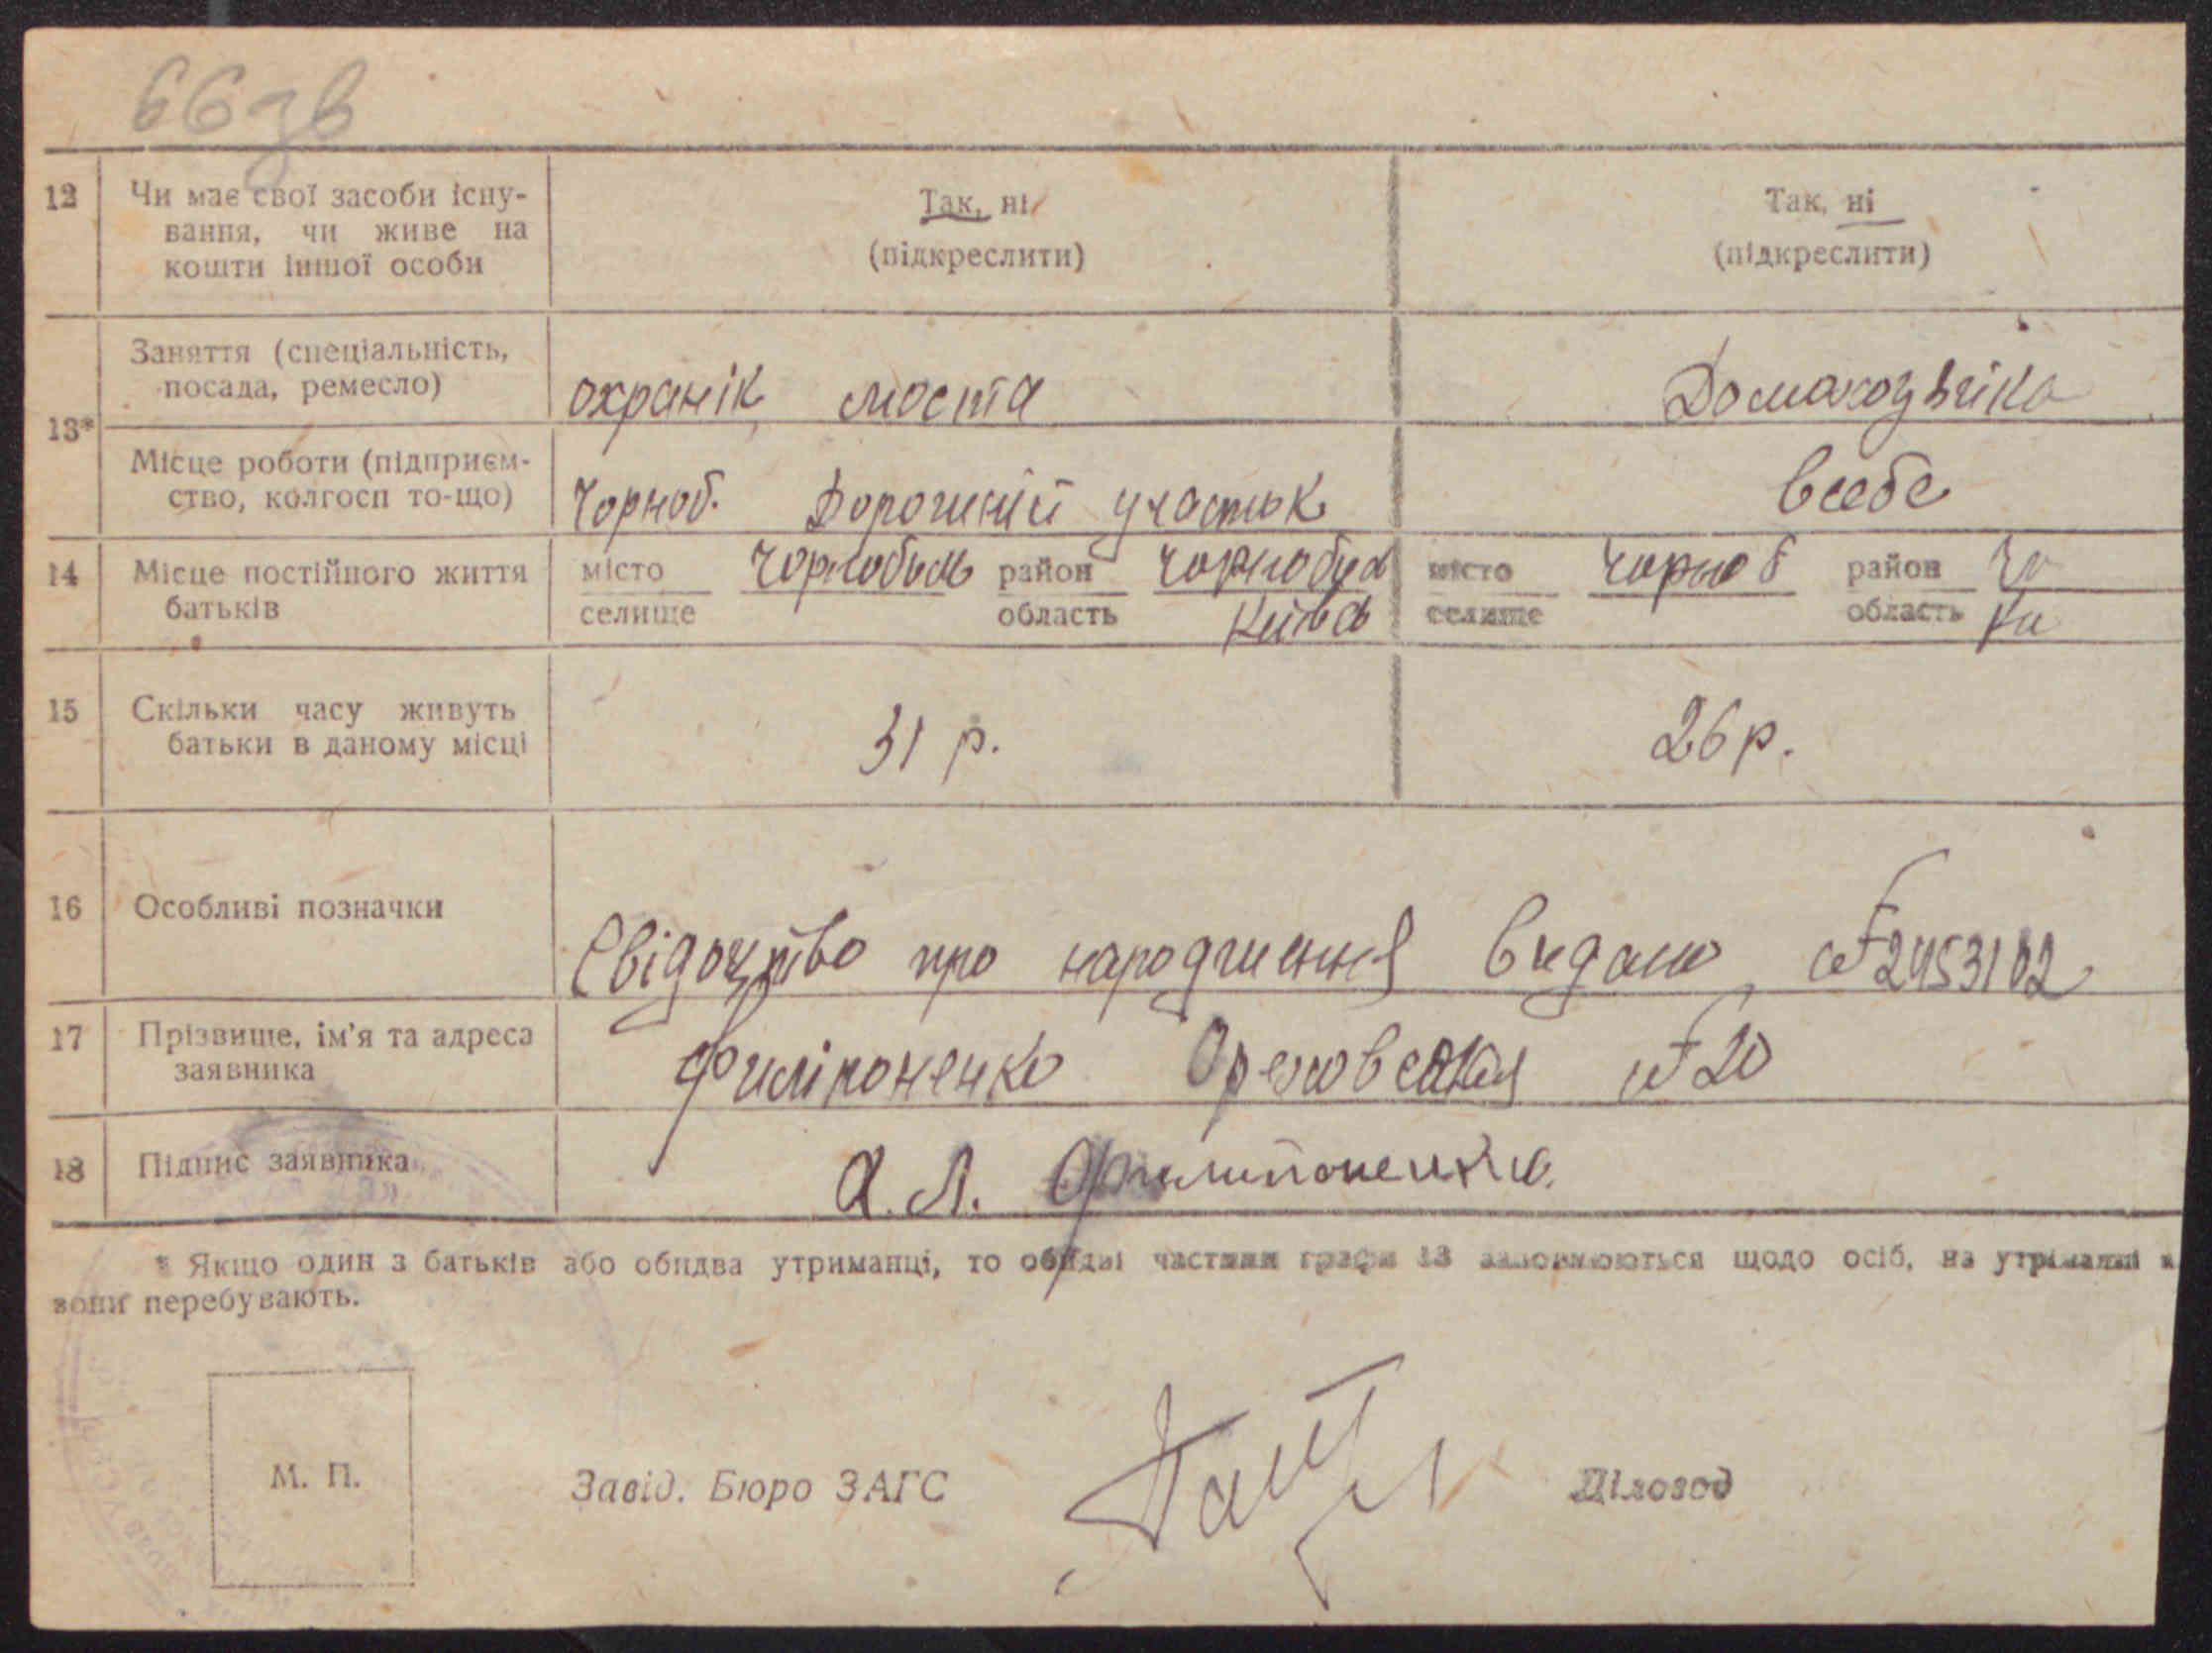 66 зв
12 Чи має свої засоби існу- Так, ні Так, ні
вання, чи живе на (підкреслити) (підкреслити)
кошти іншої особи
13* Заняття (спеціальність,
посада, ремесло) охранік моста Домахозяіка
Місце роботи (підприєм-
ство, колгосп то-що) Чорноб. Дорожній участок всебе
14 Місце постійного життя місто Чорнобиль район Чорнобил місто Чорноб район Чо
батьків селище область Київсь селище область Ки
15 Скільки часу живуть
батьки в даному місці 31 р. 26 р.
16 Особливі позначки
Свідоцтво про народження видано № 2453102
17 Прізвище, ім'я та адреса
заявника Филіпоненко №20
18 Підпис заявника А. Л. Филипоненко.
* Якщо один з батьків або обидва утриманці, то обидві частини графи 13 заповнюються щодо осіб, на утриманні я
вони перебувають.
М. П. Завід. Бюро ЗАГС Діловод